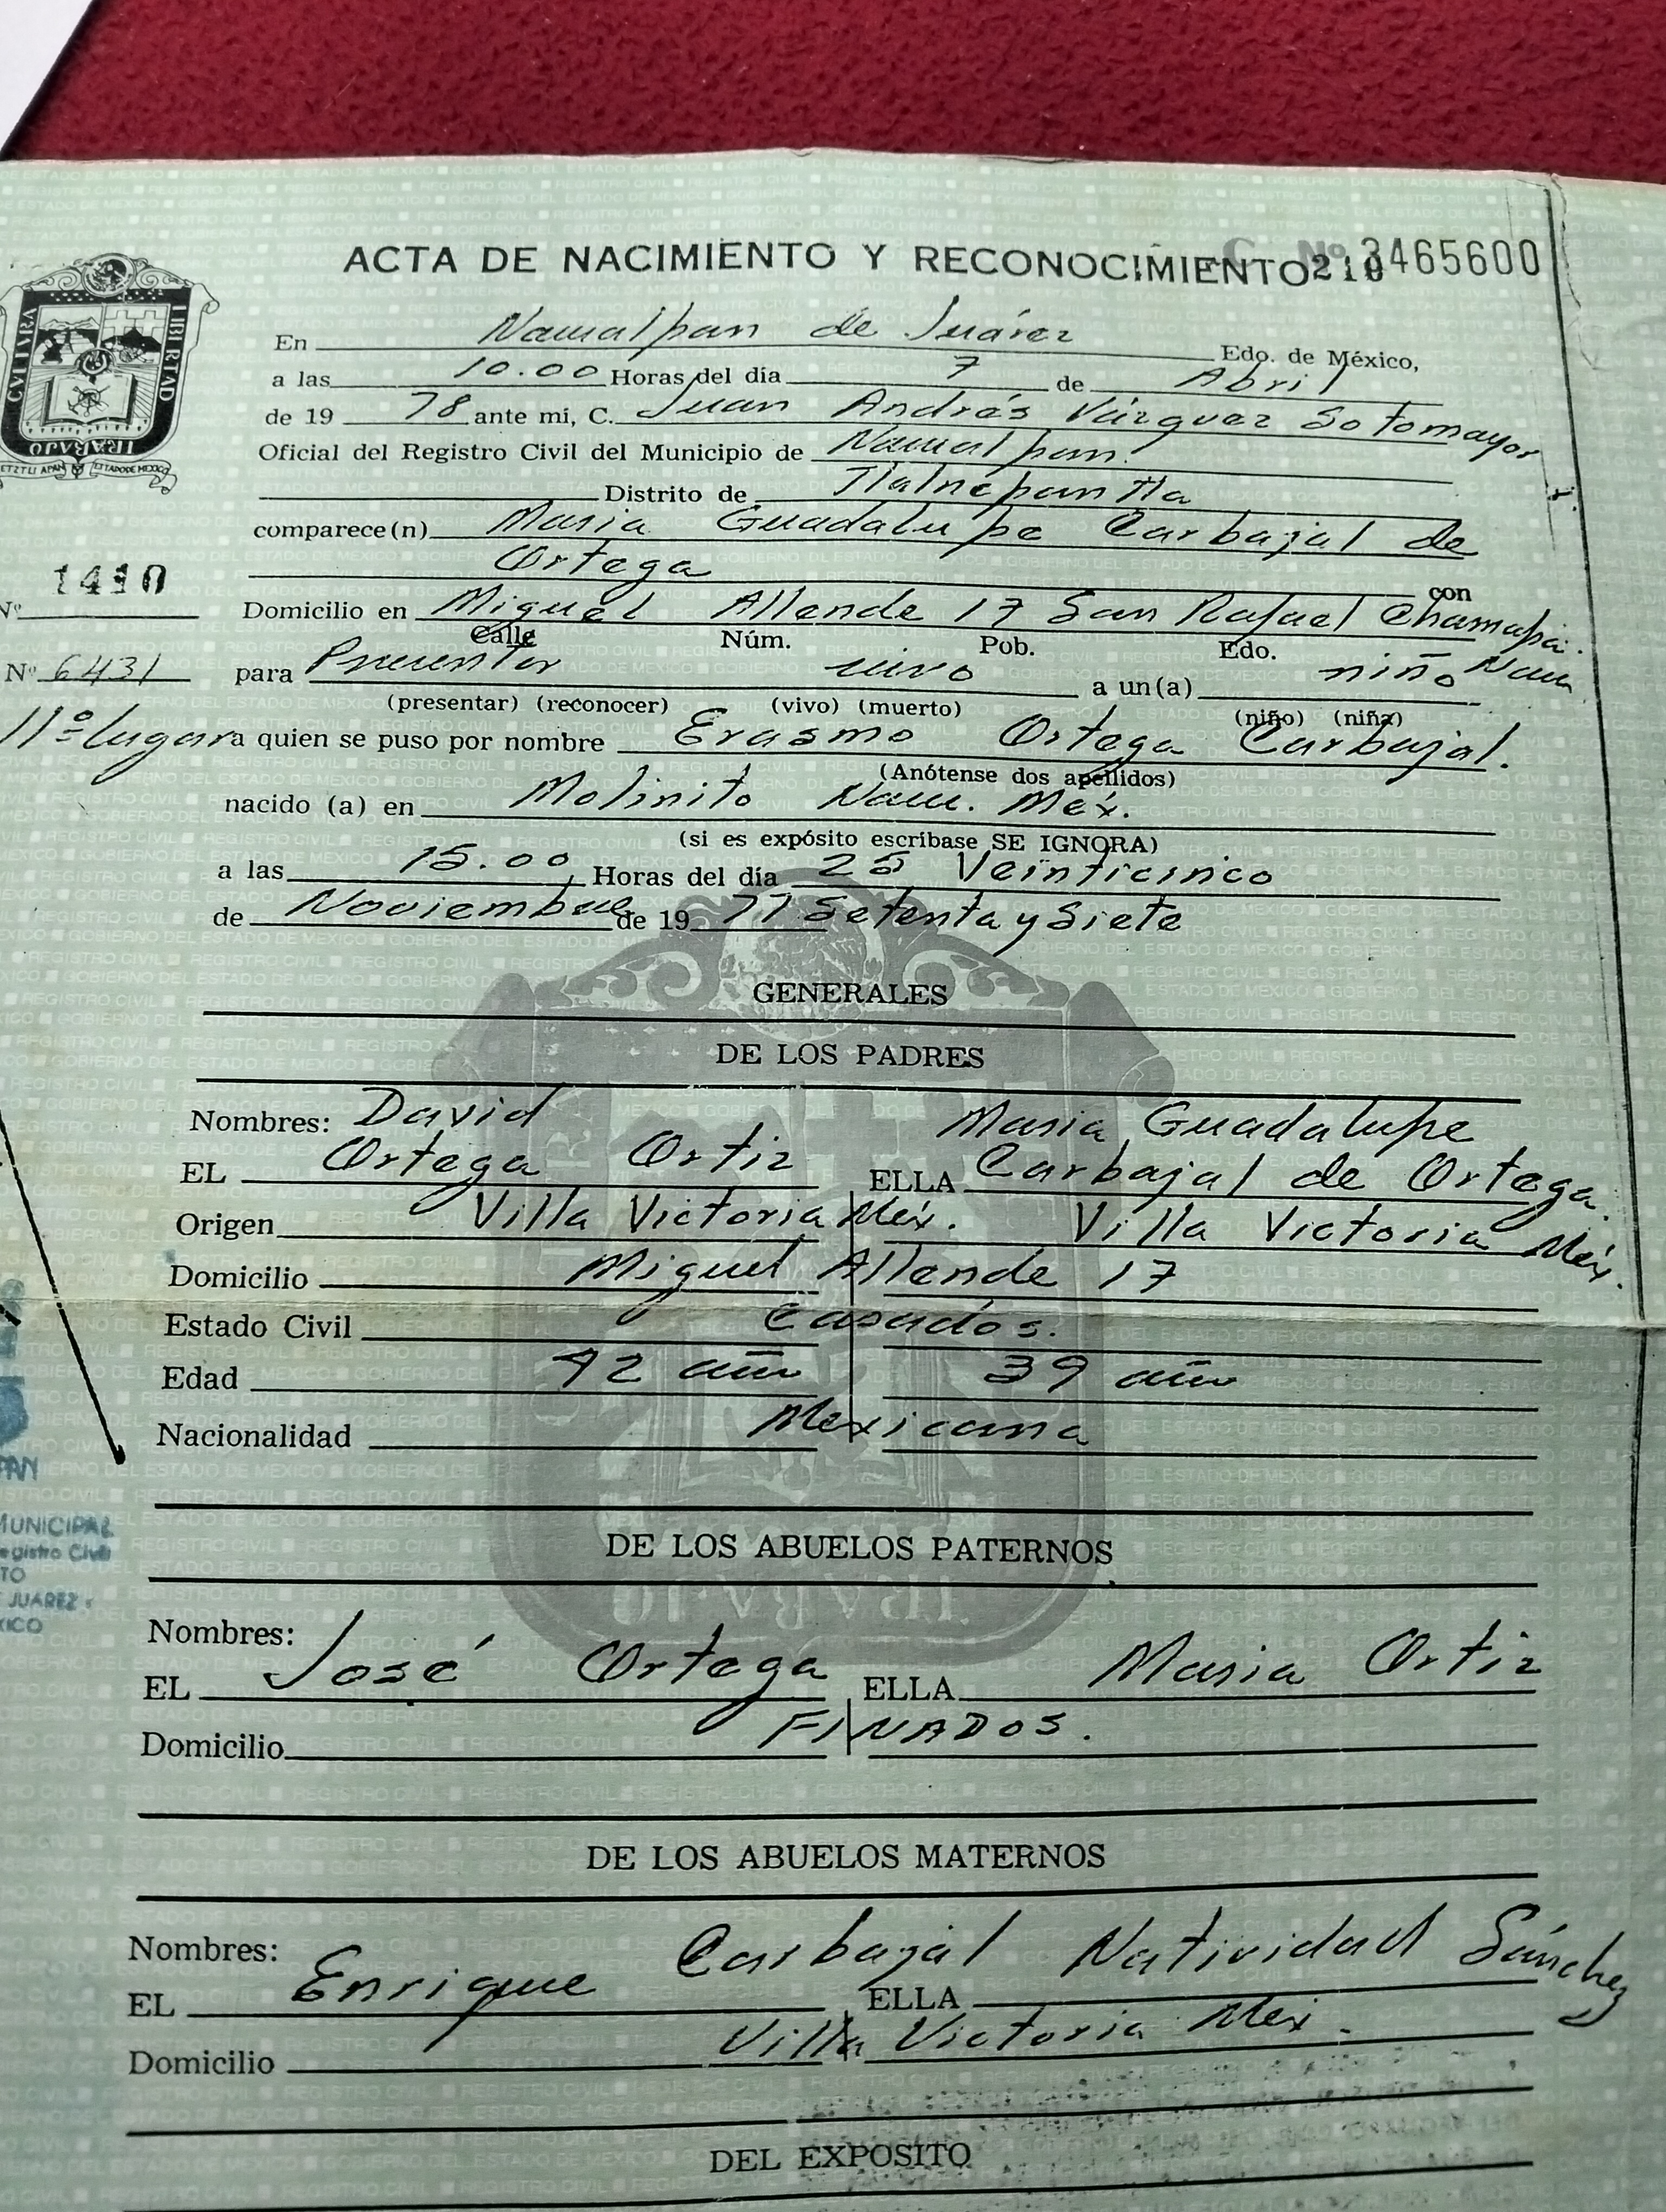 ACTA DE NACIMIENTO Y RECONOCIMIENTO 210 C Nº 3465600
CVLTVRA LIBERTAD TRABAJO
ESTADO DE MEXICO
En Naucalpan de Juárez Edo. de México,
a las 10.00 Horas del día 7 de Abril
de 19 78 ante mí, C. Juan Andrés Vázquez Sotomayor
Oficial del Registro Civil del Municipio de Naucalpan.
Distrito de Tlalnepantla
comparece(n) Maria Guadalupe Carbajal de
Ortega con
1410
Nº
Domicilio en Miguel Allende 17 San Rafael Chamapa. Nau
Calle Núm. Pob. Edo.
Nº 6431
para Presentar vivo a un(a) niño
(presentar) (reconocer) (vivo) (muerto) (niño) (niña)
11º lugar
a quien se puso por nombre Erasmo Ortega Carbajal.
(Anótense dos apellidos)
nacido (a) en Molinito Nau. Méx.
(si es expósito escríbase SE IGNORA)
a las 15.00 Horas del día 25 Veinticinco
de Noviembre de 19 77 Setenta y Siete
GENERALES
DE LOS PADRES
Nombres: David Maria Guadalupe
EL Ortega Ortiz ELLA Carbajal de Ortega.
Origen Villa Victoria Méx. Villa Victoria Méx.
Domicilio Miguel Allende 17
Estado Civil Casados.
Edad 42 años 39 años
Nacionalidad Mexicana
PAN
MUNICIPAL
egistro Civil
TO
JUAREZ
XICO
DE LOS ABUELOS PATERNOS
Nombres:
EL José Ortega ELLA Maria Ortiz
Domicilio FINADOS.
DE LOS ABUELOS MATERNOS
Nombres:
EL Enrique Carbajal ELLA Natividad Sánchez
Domicilio Villa Victoria Mex.
DEL EXPOSITO